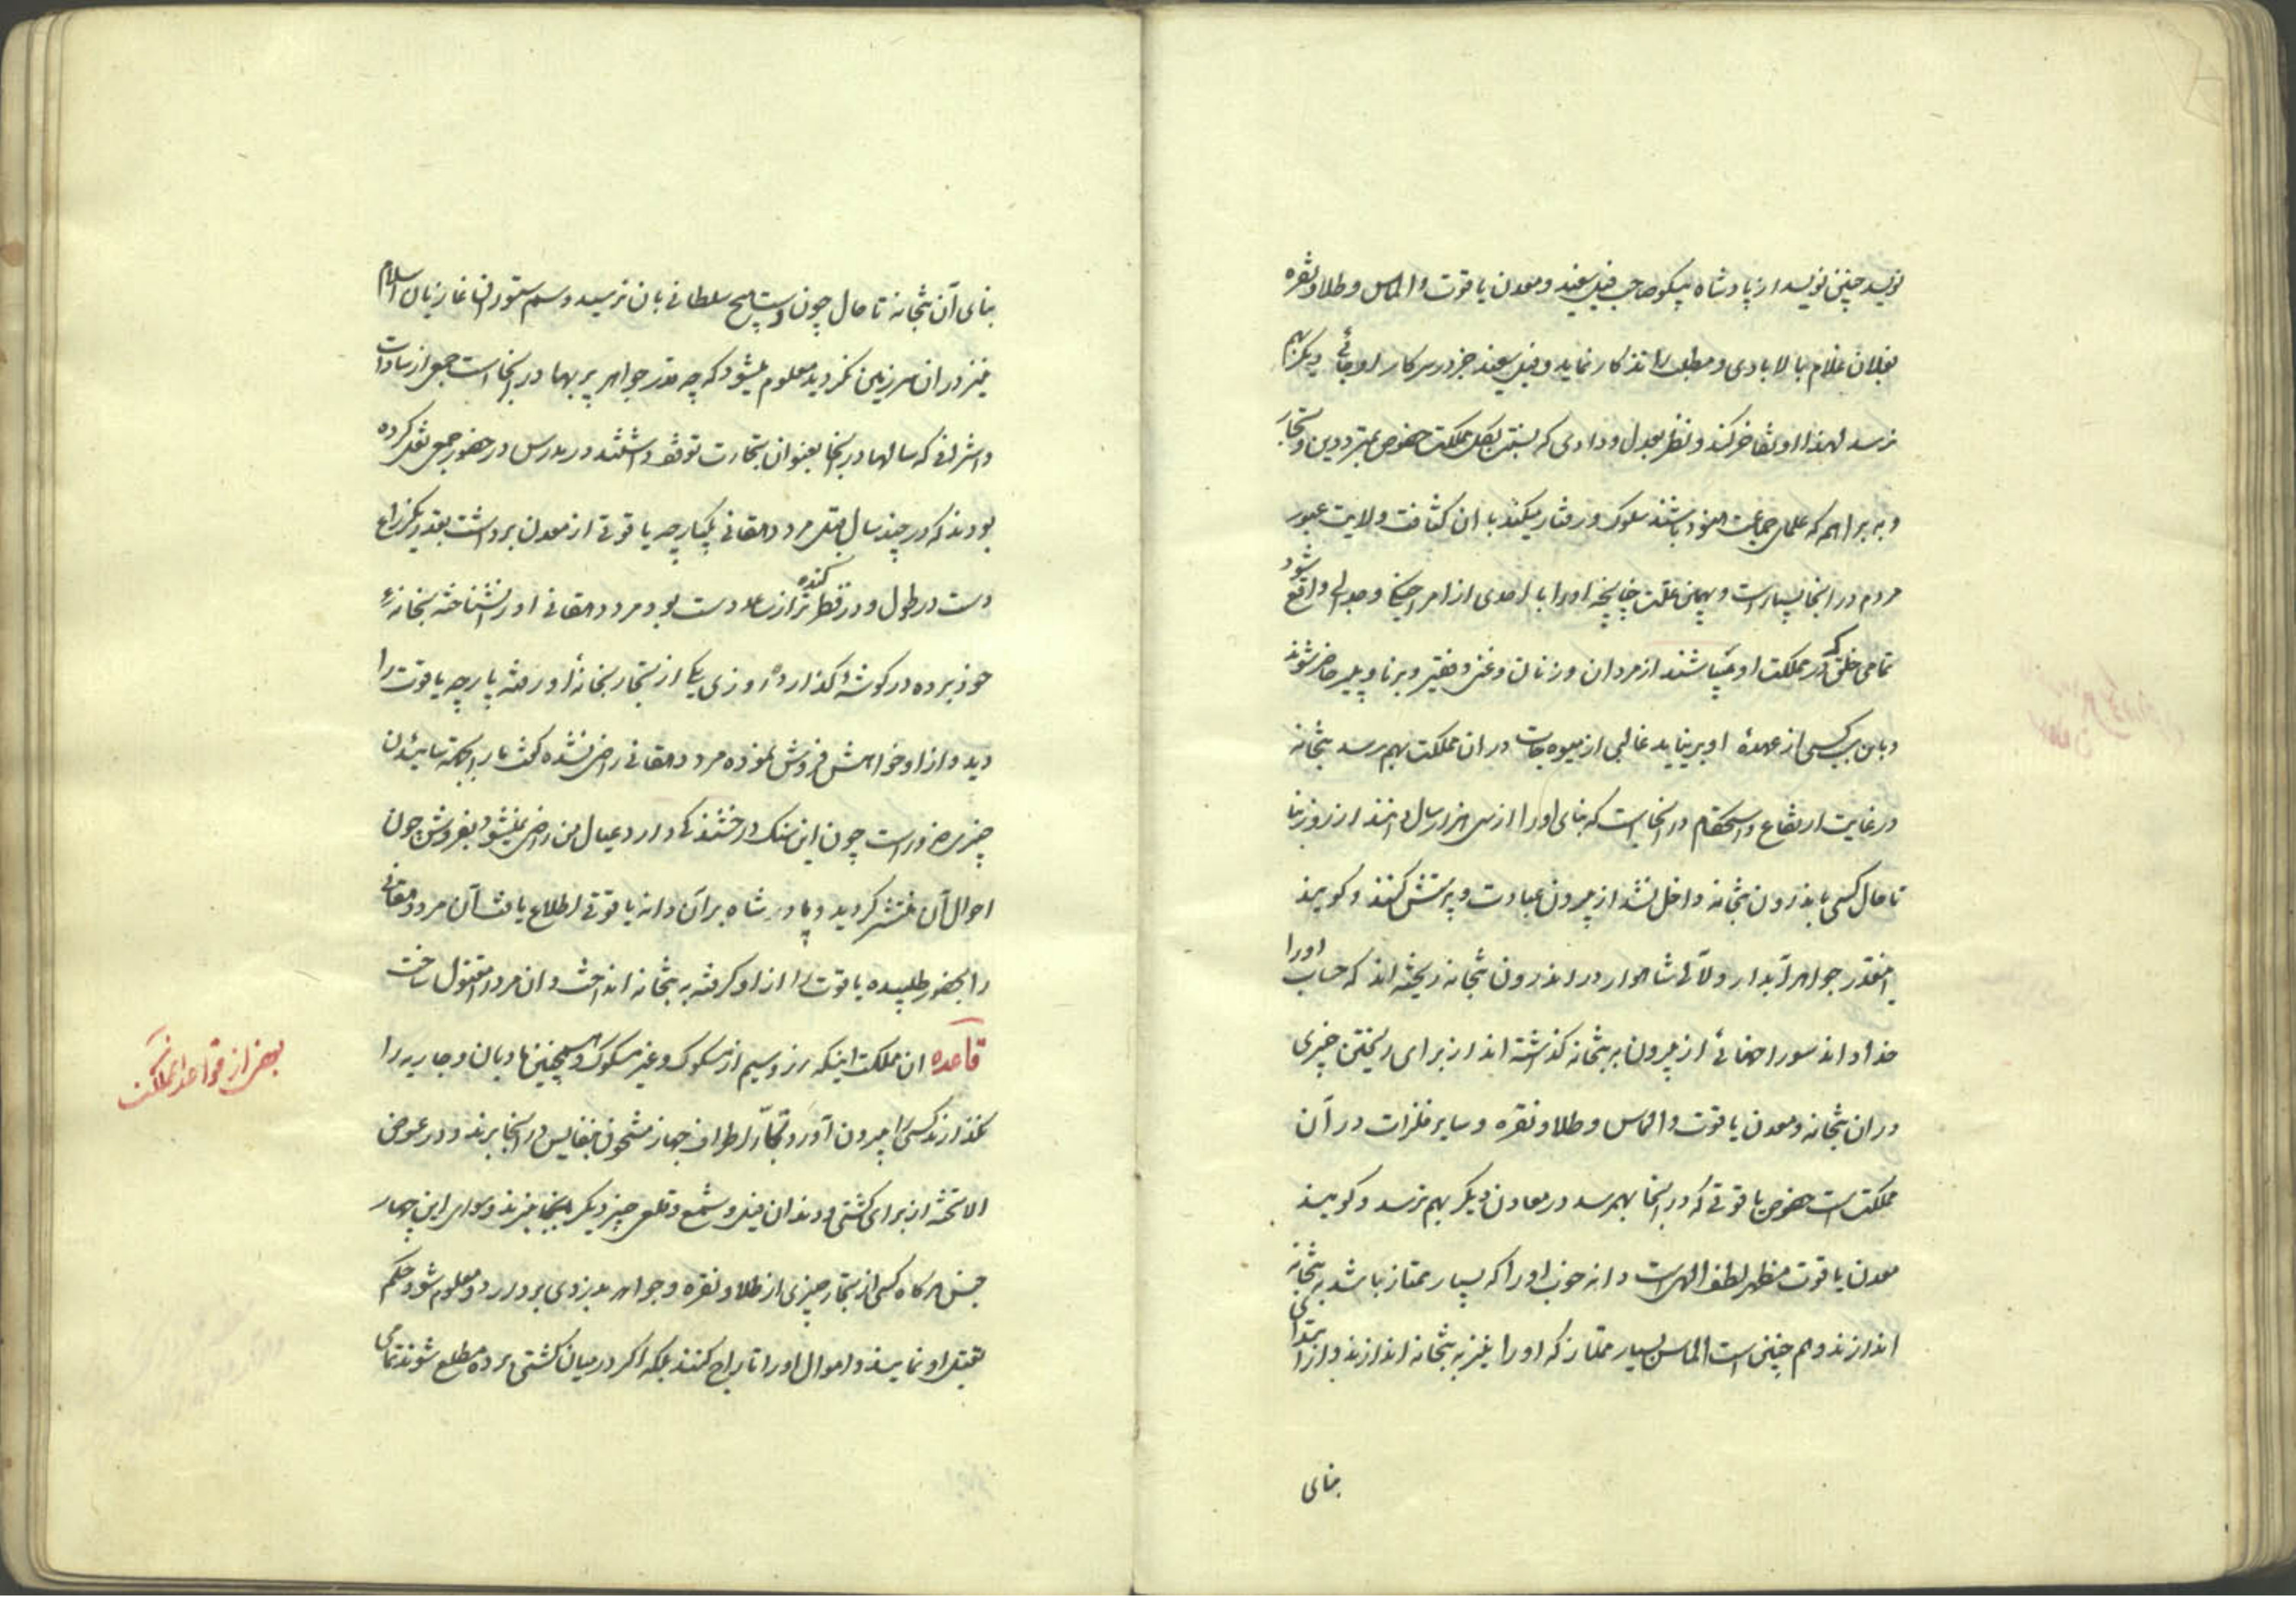 نویسد چنین نویسد از پادشاه پیکو صاحب فیل سفید و معدن یاقوت و الماس و طلا و نقره
بفلان غلام بالابادی و مطلب را تذکار نماید و فیل سفید جز در سرکار او جائی دیکر بهم
نرسد لهذا او تفاخر کند و نظر بعدل و دادی که نسبت بکل مملکت خصوص بمترددین و تجار
و به براهم که علمای جماعت هنود باشند سلوک و رفتار میکند با ان کثافت ولایت عبور
مردم در انجا بسیار است و بهمین علت چنانچه او را با احدی از امرا جنک و جدالی واقع شود
تمامی خلق که در مملکت او میباشند از مردان و زنان و غنی و فقیر و برنا و پیر حاضر شوند
و باین سبب کسی از عهدهٔ او بر نیاید غالبی از میوه جات در ان مملکت بهم رسد بتخانه
در غایت ارتفاع و استحکام در انجا است که بنای او را از سی هزار سال دانند از روز بنا
تا حال کسی باندرون بتخانه داخل نشد از بیرون عبادت و پرستش کنند و کویند
اینقدر جواهر آبدار و لآلی شاهوار در اندرون بتخانه ریخته اند که حساب او را
خدا داند سوراخهائی از بیرون به بتخانه کذاشته اند از برای ریختن چیزی
در ان بتخانه و معدن یاقوت و الماس و طلا و نقره و سایر فلزات در آن
مملکت است خصوص یاقوتی که در انجا بهم رسد در معادن دیکر بهم نرسد و کویند
معدن یاقوت مظهر لطف الهی است دانه خوب او را که بسیار ممتاز باشد به بتخانه
اندازند و هم چنین است الماس بسیار ممتاز که او را نیز به بتخانه اندازند و از ابتدای
بنای
بنای آن بتخانه تا حال چون دست هیچ سلطانی بان نرسید و سم ستوران غازیان اسلام
نیز در ان سرزمین نکردید معلوم میشود که چه قدر جواهر پر بها در انجا است جمعی از سادات
و اشرافی که سالها در انجا بعنوان تجارت توقف داشتند در مدرس در حضور جمعی نقل کرده
بودند که در چند سال قبل مرد دهقانی یکپارچه یاقوتی از معدن برداشت بقدر یکذراع
دست در طول و در قطر کنده تر از ساعد دست بود مرد دهقانی او را نشناخته بخانهٔ
خود برده در کوشهٔ کذارده روزی یکی از تجار بخانهٔ او رفته پارچه یاقوت را
دید و از او خواهش فروش نموده مرد دهقانی راضی نشده کفت ما را بجهة سائیدن
چیز ضرور است چون این سنک درخشندکی دارد عیال من راضی نمیشود بفروش چون
احوال آن منتشر کردید و پادشاه بر آن دانه یاقوتی اطلاع یافت آن مرد دهقانی
را بحضور طلبیده یاقوت را از او کرفته به بتخانه انداخت و ان مرد را مقتول ساخت
قاعده ان مملکت اینکه زر و سیم از مسکوک و غیر مسکوک و همچنین مادیان و جاریه را
نکذارند کسی بیرون آورد و تجار اطراف جهاز مشحون بنفایس در انجا برند و در عوض
الا تخته از برای کشتی و دندان فیل و شمع و قلع چیز دیکر بانجا نبرند و سوای این چهار
جنس هر کاه کسی از تجار چیزی از طلا و نقره و جواهر بدزدی بردارد و معلوم شود حکم
بقتل او نمایند و اموال او را تاراج کنند بلکه اکر در میان کشتی برده مطلع شوند تمامی
بعضی از قواعد مملکت